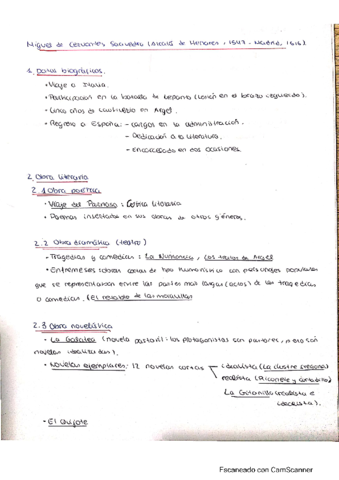 Miguel de Cervantes Saavedra (Alcalá de Henares, 1547 - Madrid, 1616)
1. Datos biográficos.
• Viaje a Italia.
• Participación en la batalla de Lepanto (lesión en el brazo izquierdo).
• Cinco años de cautiverio en Argel.
• Regreso a España: - cargos en la administración.
- Dedicación a la literatura.
- encarcelado en dos ocasiones.
2. Obra literaria
2.1 Obra poética
• Viaje del Parnaso: Crítica literaria
• Poemas insertados en sus obras de otros géneros.
2.2 Obra dramática (teatro)
• Tragedias y comedias: La Numancia, Los tratos de Argel
• Entremeses: obras cortas de tipo humorístico con personajes populares
que se representaban entre las partes más largas (actos) de las tragedias
o comedias. (El retablo de las maravillas
2.3 Obra novelística
• La Galatea (novela pastoril: los protagonistas son pastores, pero son
novelas idealizadas).
• Novelas ejemplares: 12 novelas cortas idealista (La ilustre fregona)
realista (Rinconete y Cortadillo)
La Gitanilla (realista e
idealista).
• El Quijote
Escaneado con CamScanner